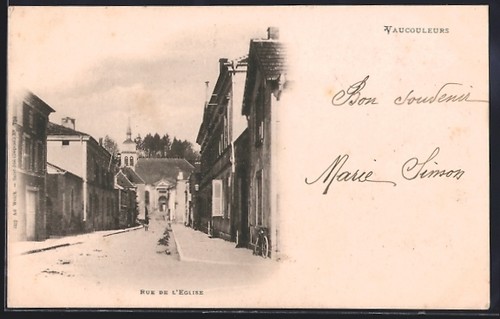 VAUCOULEURS
Bon souvenir
Marie Simon
RUE DE L'EGLISE